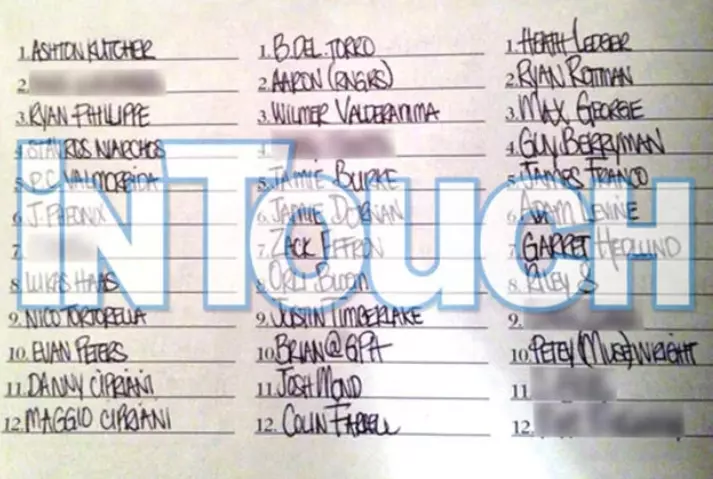 1. ASHTON KUTCHER
2.
3. RYAN PHILIPPE
4. STAVROS NIARCHOS
5. P.C. VALMORBIDA
6. J. PHEONIX
7.
8. LUKAS HAAS
9. NICO TORTORELLA
10. EVAN PETERS
11. DANNY CIPRIANI
12. MAGGIO CIPRIANI
1. B. DEL TORRO
2. AARON (RNGRS)
3. WILMER VALDERAMMA
4.
5. JAMIE BURKE
6. JAMIE DORNAN
7. ZACK EFFRON
8. ORLY BLOOM
9. JUSTIN TIMBERLAKE
10. BRIAN@GPA
11. JOSH MOND
12. COLIN FARRELL
1. HEATH LEDGER
2. RYAN ROTTMAN
3. MAX GEORGE
4. GUY BERRYMAN
5. JAMES FRANCO
6. ADAM LEVINE
7. GARRET HEDLUND
8. RILEY S
9.
10. PETEY (MUSE) WRIGHT
11
12.
iNTouch